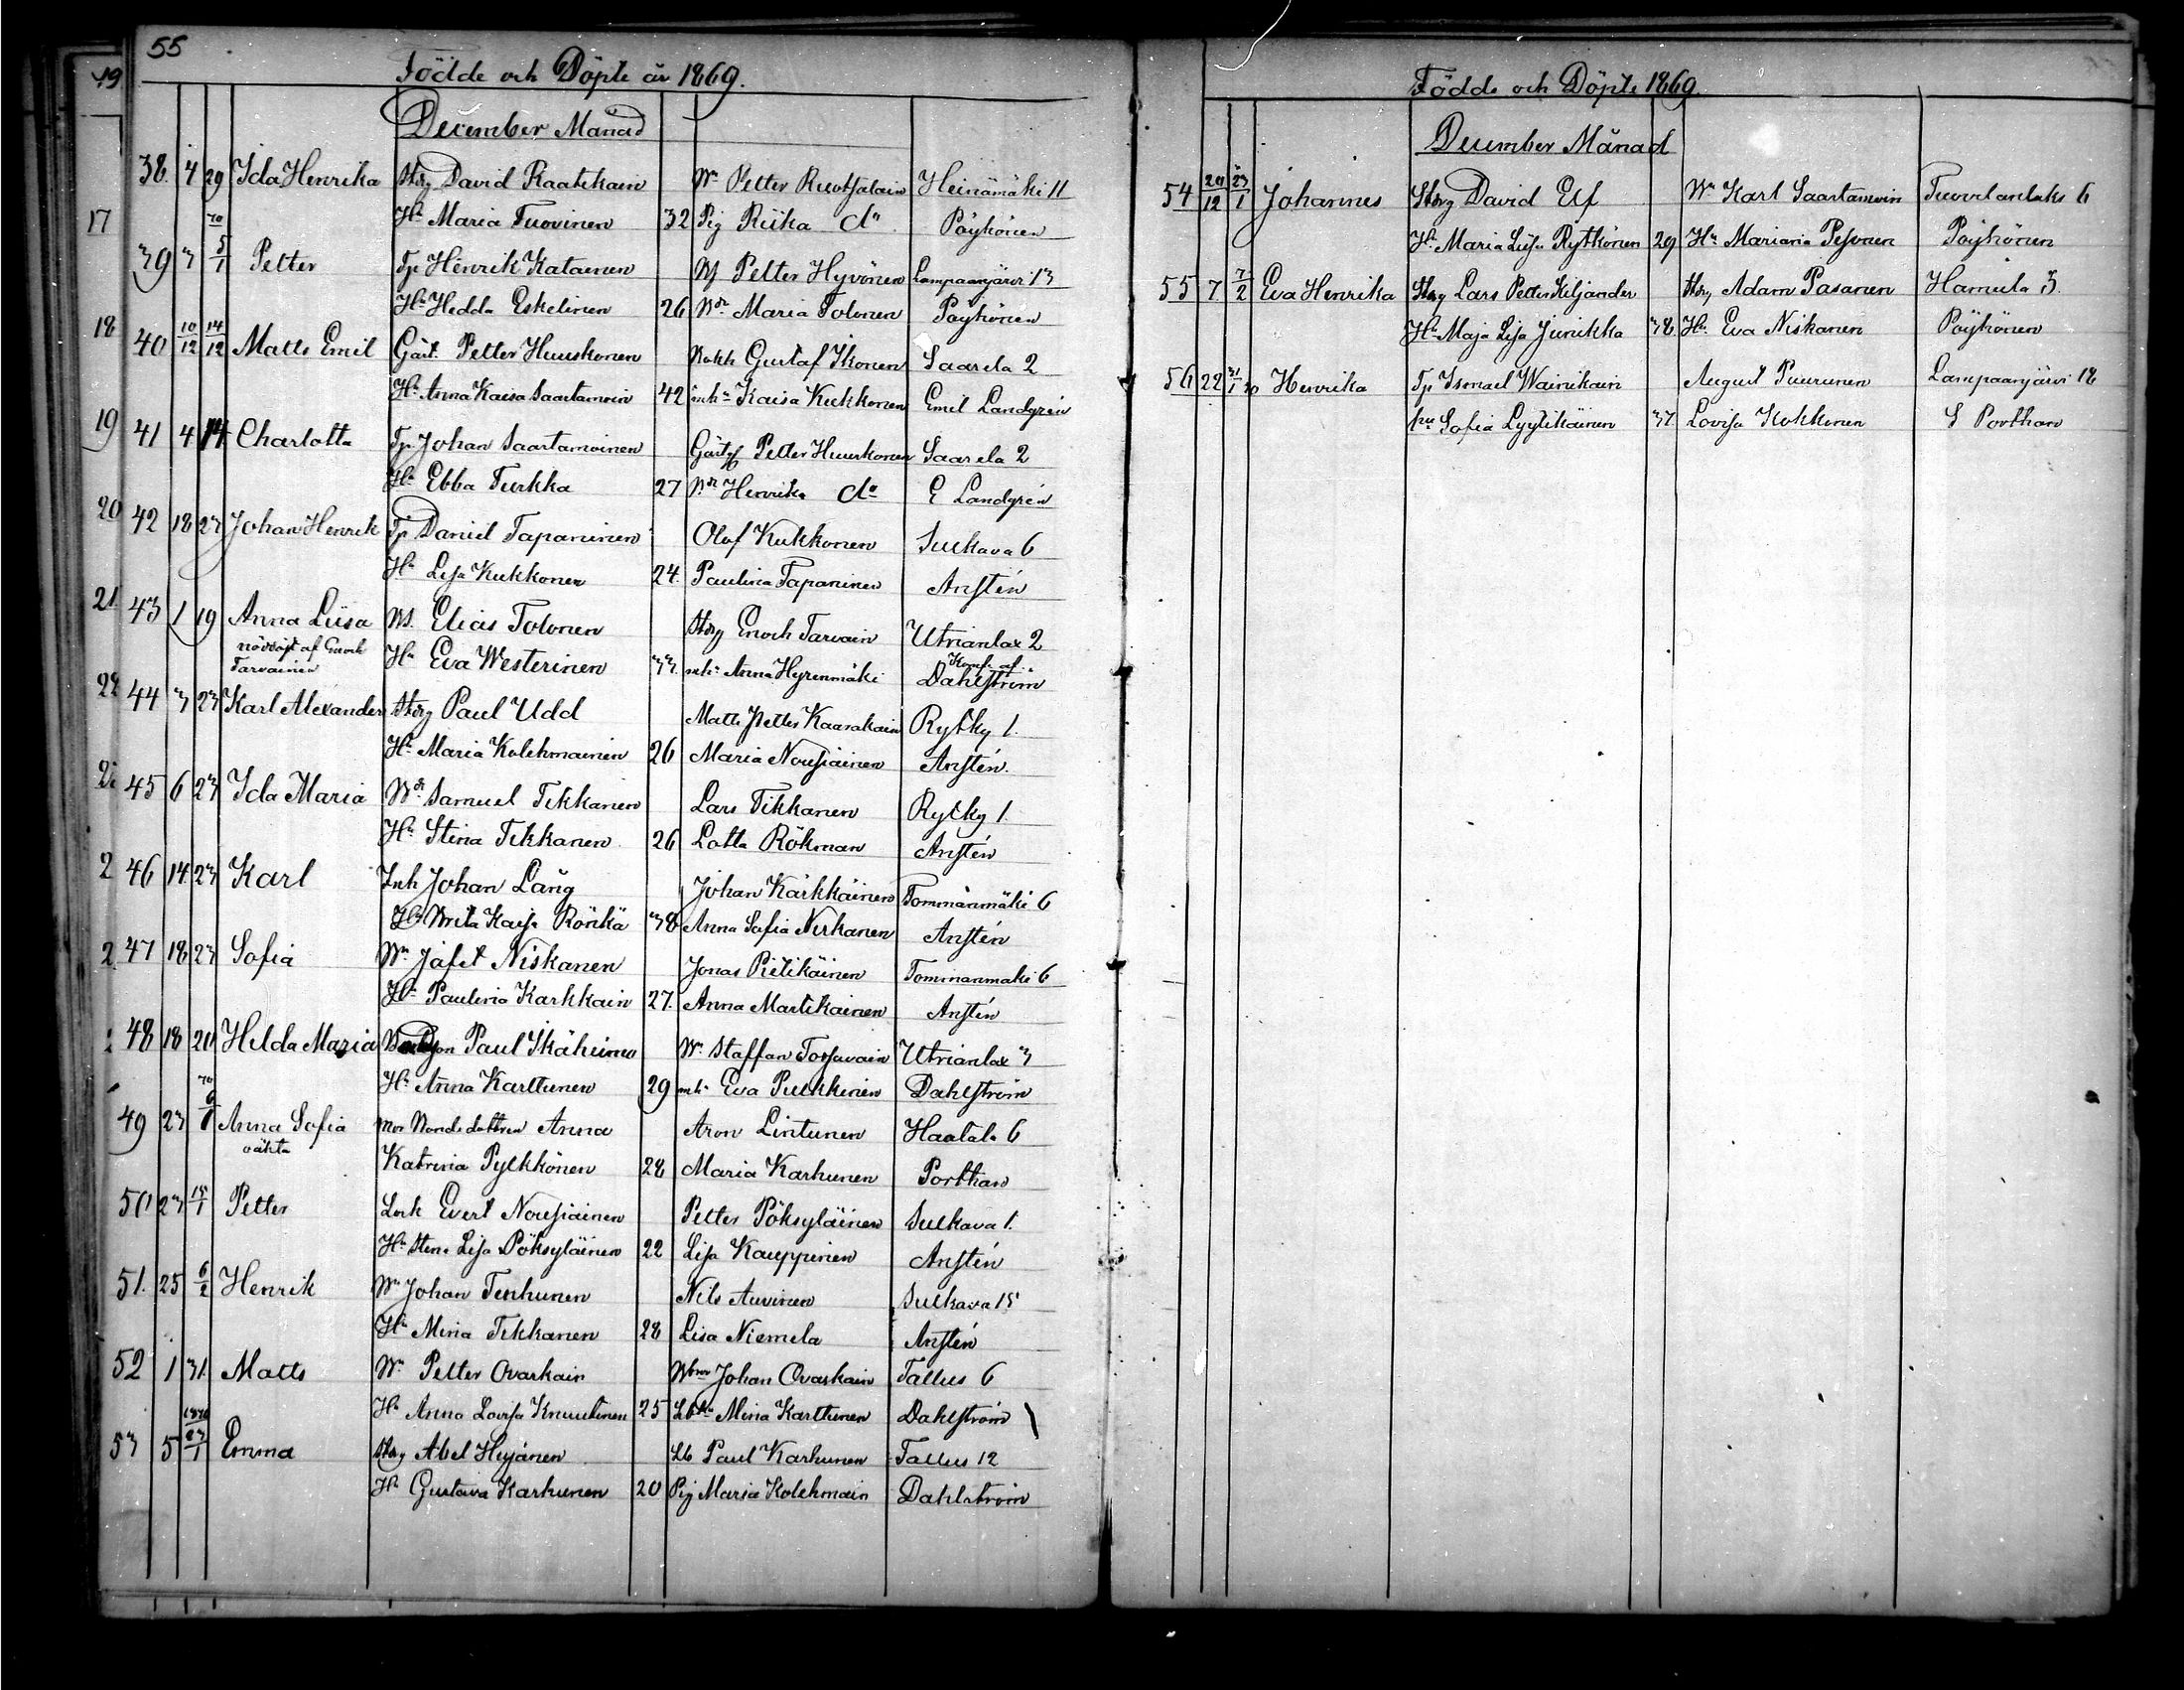 55
19
Födde och Döpte år 1869.
December Månad
38. 4 29 Ida Henrika David Raatikain Wn Petter Ruotsalain Heinämäki 11
17 Hu Maria Tuovinen 32 Pig Riika do Pöyhönen
39 3 5/1 Petter Tp Henrik Katainen Petter Hyvönen Lampaanjärvi 13
Hu Hedda Eskelinen 26 Maria Tolonen Pöyhönen
18 40 10/12 14/12 Matts Emil Gäst. Petter Huuskonen Gustaf Ikonen Saarela 2
Hu Anna Kaisa Saastamoin 42 inhn Kaisa Kukkonen Emil Landgrén
19 41 4 14 Charlotta Tp. Johan Saastamoinen Petter Huuskonen Saarela 2
Hu Ebba Turkka 27 Henrika do E Landgrén
20 42 18 23 Johan Henrik Tp Daniel Tapaninen Olof Kukkonen Sulkava 6
Hu Lisa Kukkonen 24. Paulina Tapaninen Anstén
21 43 1 19 Anna Liisa Elias Tolonen Enoch Tarvain Utrianlax 2
nöddöpt af Enoch Tarvainen Hu Eva Westerinen 33. Anna Hyrenmäki Konf. af Dahlström
22 44 3 23 Karl Alexander Paul Udd Matts Petter Kaarakain Rytky 1.
Hu Maria Kolehmainen 26 Maria Nousiainen Anstén.
45 6 23 Ida Maria Samuel Tikkanen Lars Tikkanen Rytky 1.
Hu Stina Tikkanen 26 Lotta Rökman Anstén
2 46 14 23 Karl Inh Johan Lång Johan Kärkkäinen Tommänmäki 6
Hu Brita Kaisa Rönkä 38 Anna Sofia Niskanen Anstén
2. 47 18 23 Sofia Wn Jafet Niskanen Jonas Pietikäinen Tommanmäki 6
Hu Paulina Karkkain 27. Anna Martikainen Anstén
48 18 20 Hilda Maria Paul Ikäheimo Wn Staffan Utrianlax 3
Hu Anna Karttunen 29 Eva Pulkkinen Dahlström
49 23 6/1 Anna Sofia Anna Aron Lintunen Haatala 6
oäkta Katrina Pylkkönen 28 Maria Karhunen Porthan
50 23 15/1 Petter Evert Nousiainen Petter Pöksyläinen Sulkava 1.
Hu Stina Lisa Pöksyläinen 22 Lisa Kauppinen Anstén
51. 25 6/2 Henrik Wn Johan Tenhunen Nils Auvinen Sulkava 15
Hu Mina Tikkanen 28 Lisa Niemela Anstén
52 1 31. Matts Wn Petter Ovaskain Johan Ovaskain Tallus 6
Hu Anna Lovisa Knuutinen 25 Mina Karttunen Dahlström
53 5 23/1 Emma Abel Paul Karhunen Tallus 12
Hu Gustava Karhunen 20 Pig Maria Kolehmain Dahlström
Födde och Döpte 1869.
December Månad
54 20/12 23/1 Johannes David Elf Wn Karl Saastamoin 6
Hu Maria Lisa Rytkönen 29 Hu Mariana Pesonen Pöyhönen
55 7 7/2 Eva Henrika Lars Petter Kiljander Adam Pasanen Hamula 3.
Hu Maja Lisa Junikka 38. Hu Eva Niskanen Pöyhönen
56 22 31/1 Henrika Tp Ismael Wainikain August Puurunen Lampaanjärvi 18
hu Sofia Lyytikäinen 37. Lovisa Kokkonen S Porthan